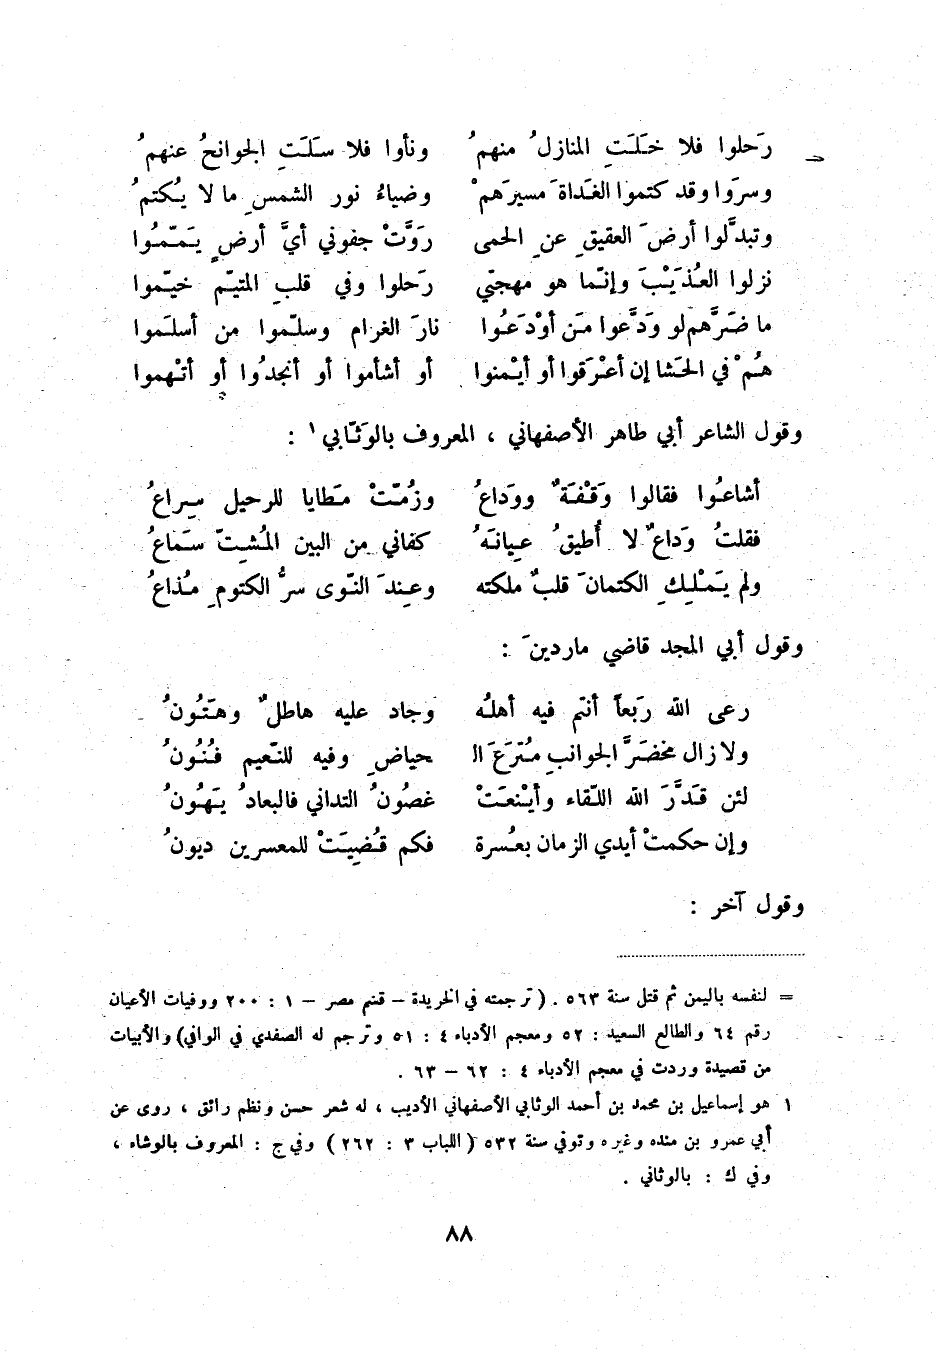 رَحلوا فلا خَلَتِ المنازلُ منهمُ ونأوا فلا سَلَتِ الجوانحُ عنهمُ
وسرَوا وقد كتموا الغَداةَ مسيرَهمْ وضياءُ نور الشمسِ ما لا يُكتمُ
وتبدَّلوا أرضَ العقيقِ عنِ الحمى رَوَّتْ جفوني أيَّ أرضٍ يَمّمُوا
نزلوا العُذَيْبَ وإنّما هو مهجتي رَحلوا وفي قلبِ المتيّم خيّموا
ما ضَرَّهم لو وَدَّعوا مَن أوْدَعُوا نارَ الغرام وسلّموا من أسلَموا
هُمْ في الحَشا إن أعْرَقوا أو أيْمنوا أو أشأموا أو أنجدُوا أو أتْهموا
وقول الشاعر أبي طاهر الأصفهاني ، المعروف بالوَثّابي ١ :
أشاعُوا فقالوا وَقْفَةٌ ووَداعُ وزُمّتْ مَطايا للرحيل سِراعُ
فقلتُ وَداعٌ لا أُطيقُ عِيانَهُ كفاني مِن البين المُشِتّ سَماعُ
ولم يَمْلِكِ الكتمانَ قلبٌ ملكته وعِندَ النّوى سرُّ الكتومِ مُذاعُ
وقول أبي المجد قاضي ماردينَ :
رعى الله رَبعاً أنتم فيه أهلُه وجاد عليه هاطلٌ وهَتُونُ
ولا زال مخضَرَّ الجوانبِ مُترَعَ ال حياضِ وفيه للنّعيم فُنُونُ
لئن قَدَّرَ الله اللّقاء وأيْنعَتْ غصُونُ التداني فالبعادُ يَهُونُ
وإن حكمتْ أيدي الزمان بعُسرة فكم قُضِيَتْ للمعسرين ديونُ
وقول آخر :
= لنفسه باليمن ثم قتل سنة ٥٦٣ . ( ترجمته في الخريدة – قسم مصر – ١ : ٢٠٠ ووفيات الأعيان
رقم ٦٤ والطالع السعيد : ٥٢ ومعجم الأدباء ٤ : ٥١ وترجم له الصفدي في الوافي) والأبيات
من قصيدة وردت في معجم الأدباء ٤ : ٦٢ – ٦٣ .
١ هو إسماعيل بن محمد بن أحمد الوثابي الأصفهاني الأديب ، له شعر حسن ونظم رائق ، روى عن
أبي عمرو بن منده وغيره وتوفي سنة ٥٣٢ ( اللباب ٣ : ٢٦٢ ) وفي ج : المعروف بالوشاء ،
وفي ك : بالوثاني .
٨٨